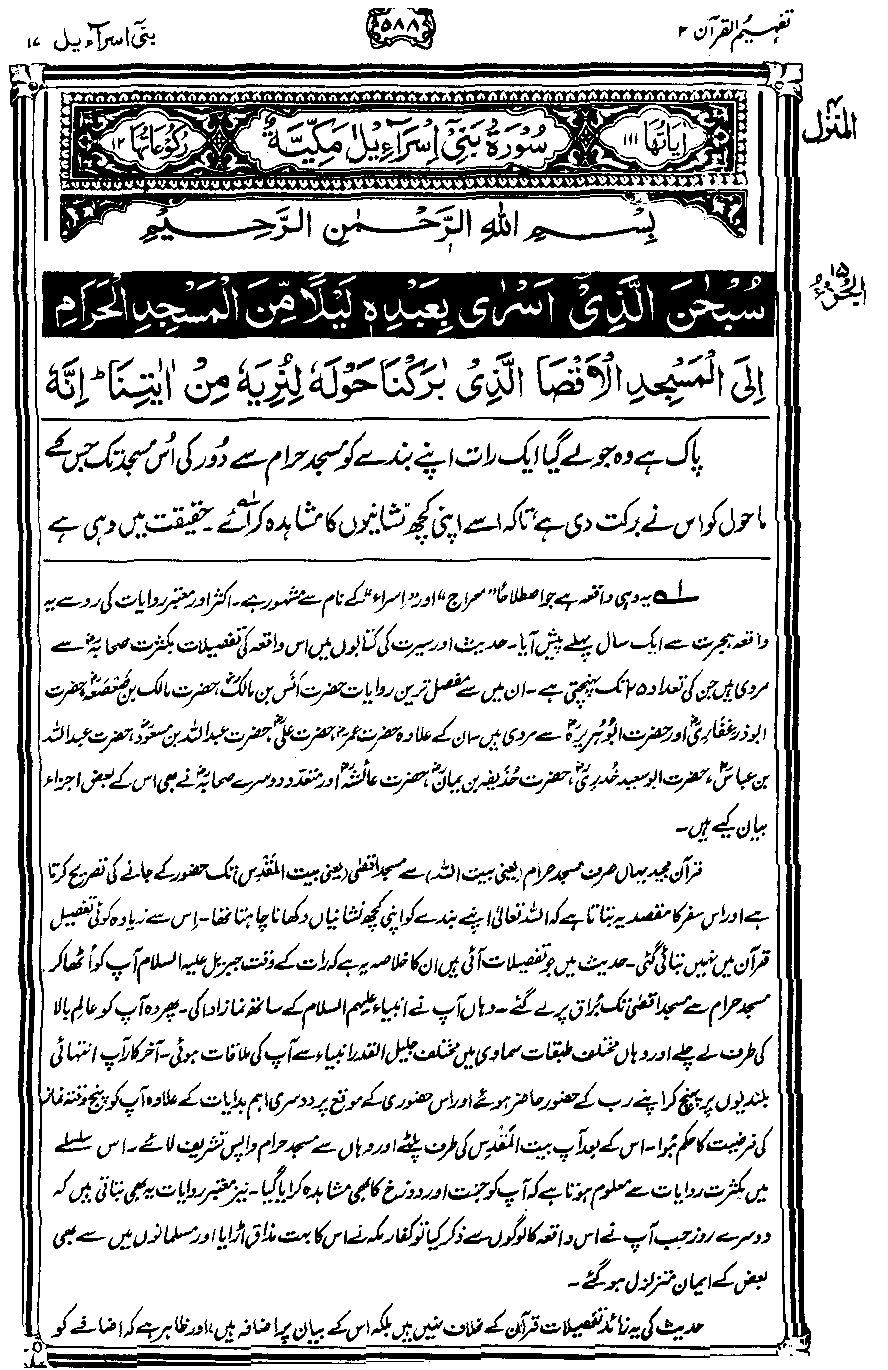 تفہیم القرآن ۲
۵۸۸
بنیٓ اسرآءیل ۱۷
المنزل ۴
اٰیَاتُهَا ۱۱۱
سُوْرَةُ بَنِیْٓ اِسْرَآءِیْلَ مَکِّیَّةٌ
رُکُوْعَاتُهَا ۱۲
بِسْمِ اللهِ الرَّحْمٰنِ الرَّحِیْمِ
الجزء ۱۵
سُبْحٰنَ الَّذِیْٓ اَسْرٰی بِعَبْدِهٖ لَیْلًا مِّنَ الْمَسْجِدِ الْحَرَامِ
اِلَی الْمَسْجِدِ الْاَقْصَا الَّذِیْ بٰرَکْنَا حَوْلَهٗ لِنُرِیَهٗ مِنْ اٰیٰتِنَا ؕ اِنَّهٗ
پاک ہے وہ جو لے گیا ایک رات اپنے بندے کو مسجد حرام سے دُور کی اُس مسجد تک جس کے
ماحول کو اس نے برکت دی ہے، تاکہ اسے اپنی کچھ نشانیوں کا مشاہدہ کرائے۔ حقیقت میں وہی ہے
۱؎ یہ وہی واقعہ ہے جو اصطلاحاً ”معراج“ اور ”اِسراء“ کے نام سے مشہور ہے۔ اکثر اور معتبر روایات کی رو سے یہ
واقعہ ہجرت سے ایک سال پہلے پیش آیا۔ حدیث اور سیرت کی کتابوں میں اس واقعہ کی تفصیلات بکثرت صحابہؓ سے
مروی ہیں جن کی تعداد ۲۵ تک پہنچتی ہے۔ ان میں سے مفصل ترین روایات حضرت انس بن مالکؓ، حضرت مالک بن صَعْصَعہؓ، حضرت
ابوذر غفاریؓ اور حضرت ابوہُریرہؓ سے مروی ہیں۔ ان کے علاوہ حضرت عمرؓ، حضرت علیؓ، حضرت عبداللہ بن مسعودؓ، حضرت عبداللہ
بن عباسؓ، حضرت ابوسعید خُدریؓ، حضرت حُذیفہ بن یمانؓ، حضرت عائشہؓ اور متعدد دوسرے صحابہؓ نے بھی اس کے بعض اجزاء
بیان کیے ہیں۔
قرآن مجید یہاں صرف مسجد حرام (یعنی بیت اللہ) سے مسجد اقصٰی (یعنی بیت المَقْدِس) تک حضور کے جانے کی تصریح کرتا
ہے اور اس سفر کا مقصد یہ بتاتا ہے کہ اللہ تعالیٰ اپنے بندے کو اپنی کچھ نشانیاں دکھانا چاہتا تھا۔ اِس سے زیادہ کوئی تفصیل
قرآن میں نہیں بتائی گئی۔ حدیث میں جو تفصیلات آئی ہیں ان کا خلاصہ یہ ہے کہ رات کے وقت جبریل علیہ السلام آپ کو اُٹھا کر
مسجد حرام سے مسجد اقصیٰ تک بُراق پر لے گئے۔ وہاں آپ نے انبیاء علیہم السلام کے ساتھ نماز ادا کی۔ پھر وہ آپ کو عالَم بالا
کی طرف لے چلے اور وہاں مختلف طبقات سماوی میں مختلف جلیل القدر انبیاء سے آپ کی ملاقات ہوئی۔ آخر کار آپ انتہائی
بلندیوں پر پہنچ کر اپنے رب کے حضور حاضر ہوئے اور اس حضوری کے موقع پر دوسری اہم ہدایات کے علاوہ آپ کو پنج وقتہ نماز
کی فرضیت کا حکم ہُوا۔ اس کے بعد آپ بیت المَقْدِس کی طرف پلٹے اور وہاں سے مسجد حرام واپس تشریف لائے۔ اس سلسلے
میں بکثرت روایات سے معلوم ہوتا ہے کہ آپ کو جنت اور دوزخ کا بھی مشاہدہ کرایا گیا۔ نیز معتبر روایات یہ بھی بتاتی ہیں کہ
دوسرے روز جب آپ نے اس واقعہ کا لوگوں سے ذکر کیا تو کفار مکہ نے اس کا بہت مذاق اُڑایا اور مسلمانوں میں سے بھی
بعض کے ایمان متزلزل ہو گئے۔
حدیث کی یہ زائد تفصیلات قرآن کے خلاف نہیں ہیں بلکہ اس کے بیان پر اضافہ ہیں، اور ظاہر ہے کہ اضافے کو